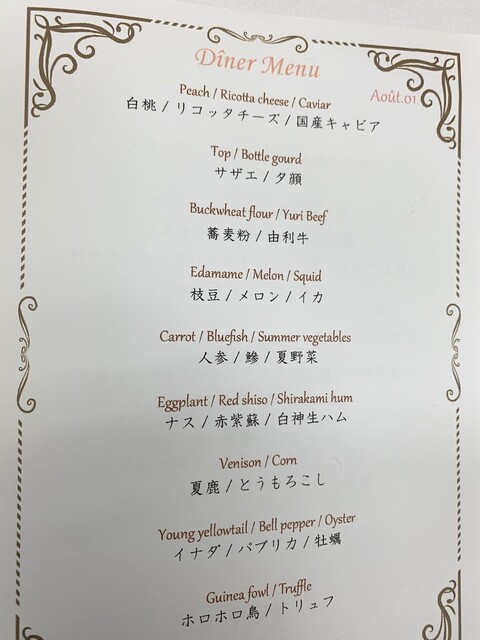 Dîner Menu
Août.01
Peach / Ricotta cheese / Caviar
白桃 / リコッタチーズ / 国産キャビア
Top / Bottle gourd
サザエ / 夕顔
Buckwheat flour / Yuri Beef
蕎麦粉 / 由利牛
Edamame / Melon / Squid
枝豆 / メロン / イカ
Carrot / Bluefish / Summer vegetables
人参 / 鰺 / 夏野菜
Eggplant / Red shiso / Shirakami hum
ナス / 赤紫蘇 / 白神生ハム
Venison / Corn
夏鹿 / とうもろこし
Young yellowtail / Bell pepper / Oyster
イナダ / パプリカ / 牡蠣
Guinea fowl / Truffle
ホロホロ鳥 / トリュフ